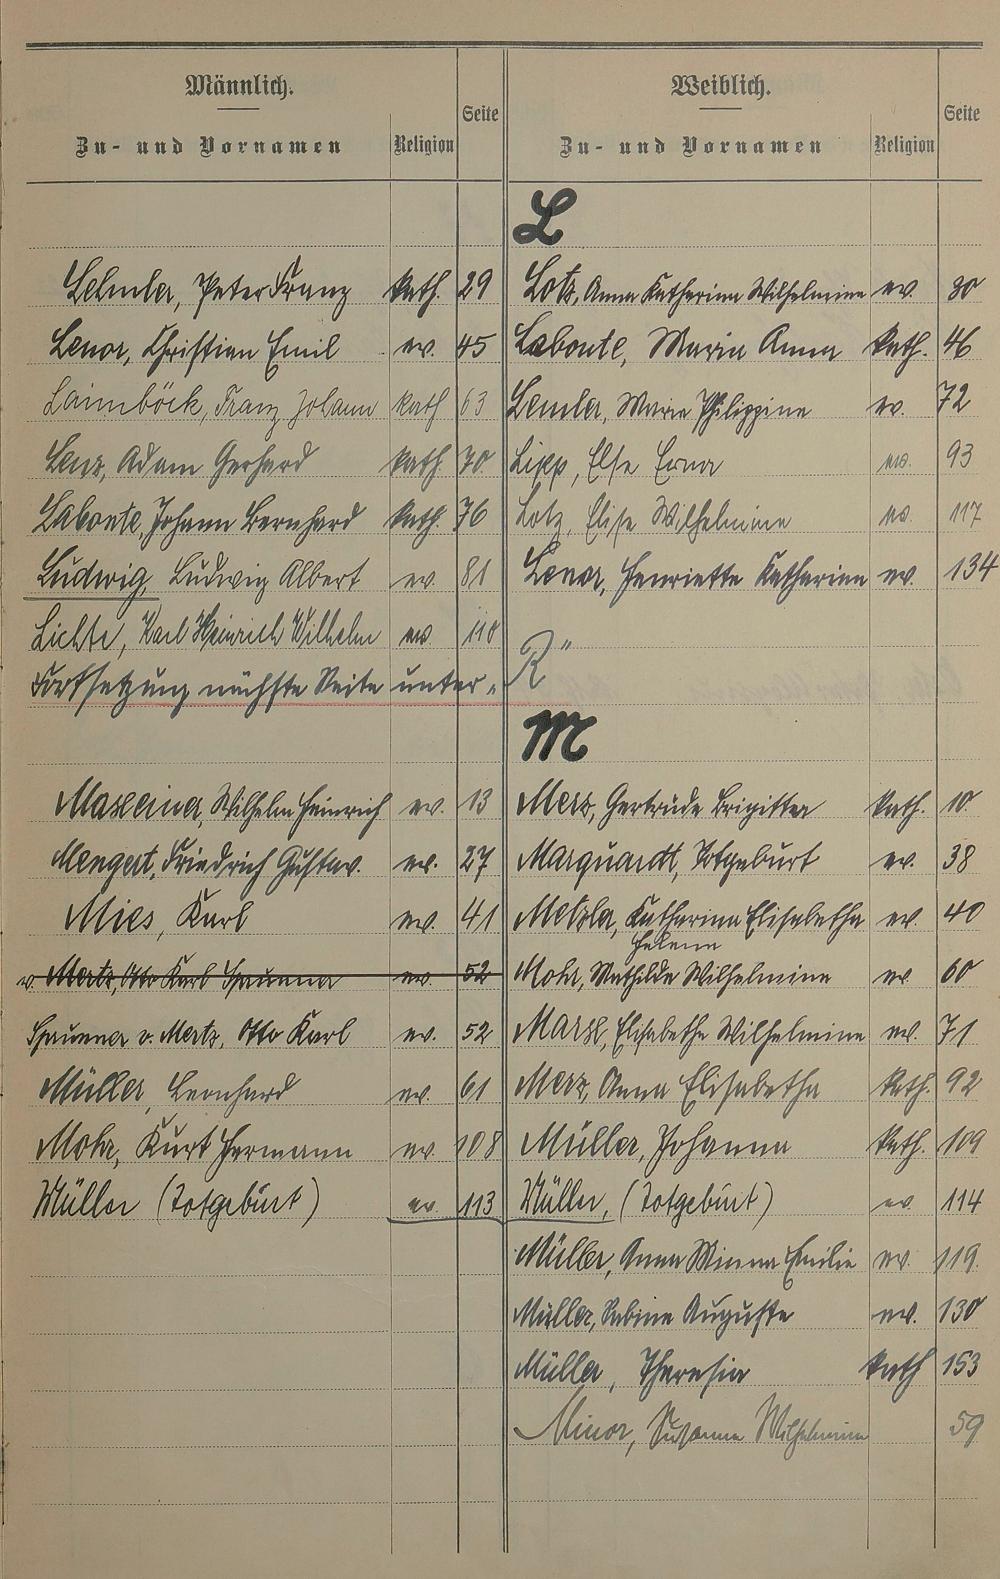 Männlich.
Zu- und Vornamen Religion Seite
Weiblich.
Zu- und Vornamen Religion Seite
L
Lehmler, Peter Franz kath. 29
Lotz, Anna Katharina Wilhelmine ev. 30
Lenor, Christian Emil ev. 45
Laboute, Maria Anna kath. 46
Laimböck, Franz Johann kath 63
Lemler, Marie Philippine ev. 72
Lenz, Adam Gerhard kath. 70
Lipp, Else Erna ev. 93
Laboute, Johann Bernhard kath. 76
Lotz, Elise Wilhelmine ev. 117
Ludwig, Ludwig Albert ev. 81
Lenor, Henriette Katharina ev. 134
Lichte, Karl Heinrich Wilhelm ev. 110
Fortsetzung nächste Seite unter „R"
M
Wilhelm Heinrich ev. 13
Merz, Gertrude Brigitta kath. 10
Mengert, Friedrich Gustav. ev. 27
Marquardt, Totgeburt ev. 38
Mies, Karl ev. 41
Metzler, Katharina Elisabetha ev. 40
Helena
v. Mertz, Otto Karl ev. 52
Mohr, Mathilde Wilhelmine ev. 60
v. Mertz, Otto Karl ev. 52
Elisabetha Wilhelmine ev. 71
Müller, Leonhard ev. 61
Merz, Anna Elisabetha kath. 92
Mohr, Kurt Hermann ev. 108
Müller, Johanna kath. 109
Müller (Totgeburt) ev. 113
Müller, (Totgeburt) ev. 114
Müller, Anna Minna Emilie ev. 119.
Müller, Sabine Auguste ev. 130
Müller, Theresia kath 153
Minor, Susanna Wilhelmina 59